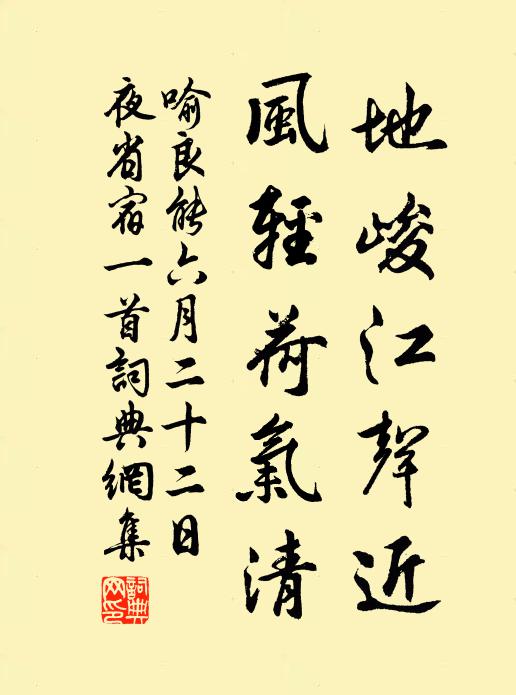 地峻江聲近
風輕荷氣清
喻良能六月二十二日
夜省宿一首詞典網集
詞典網印